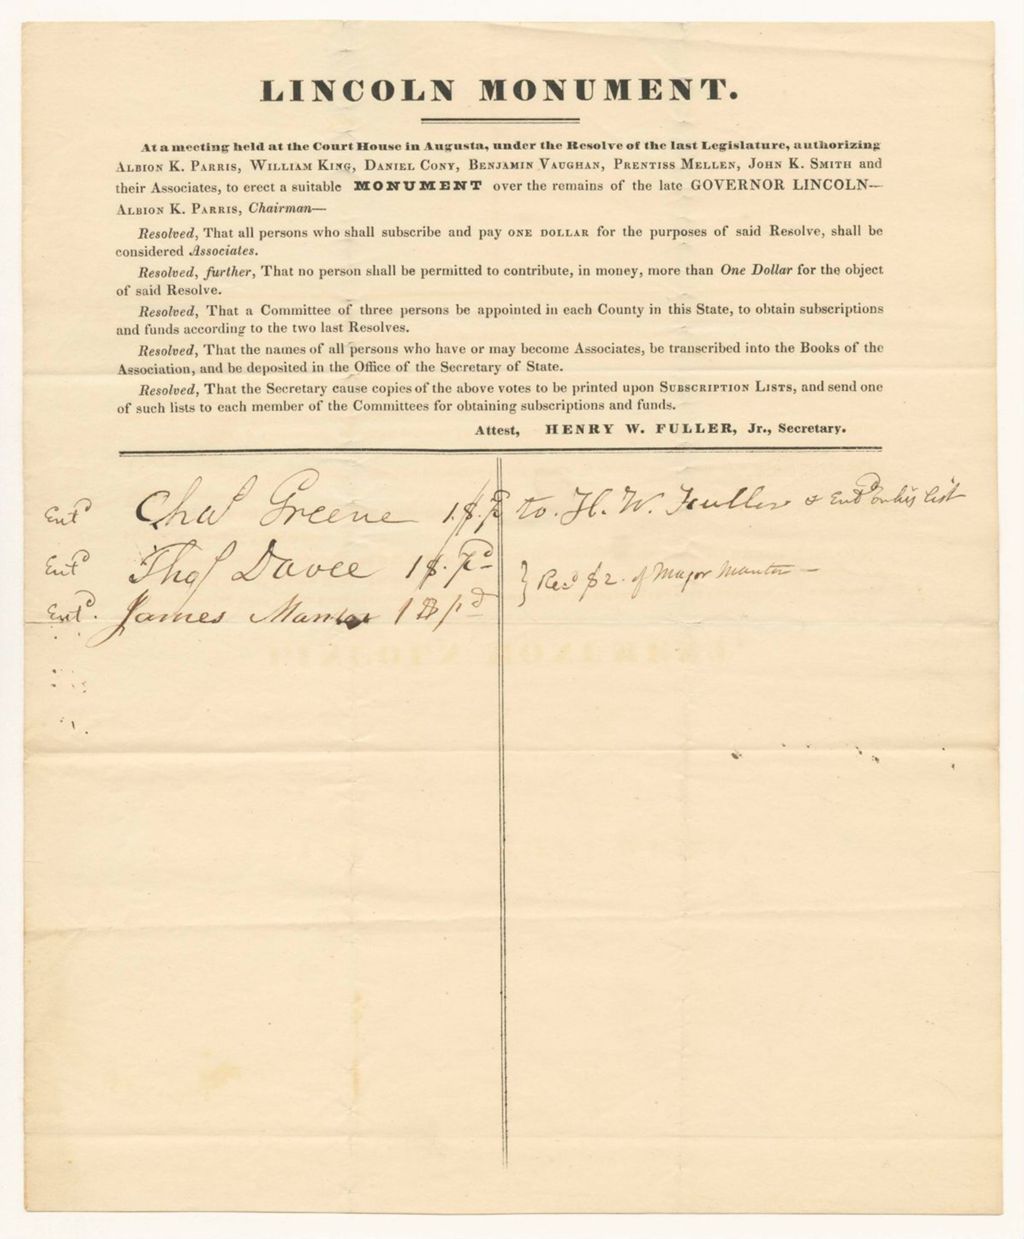 LINCOLN MONUMENT.
At a meeting held at the Court House in Augusta, under the Resolve of the last Legislature, authorizing
ALBION K. PARRIS, WILLIAM KING, DANIEL CONY, BENJAMIN VAUGHAN, PRENTISS MELLEN, JOHN K. SMITH and
their Associates, to erect a suitable MONUMENT over the remains of the late GOVERNOR LINCOLN—
ALBION K. PARRIS, Chairman—
Resolved, That all persons who shall subscribe and pay ONE DOLLAR for the purposes of said Resolve, shall be
considered Associates.
Resolved, further, That no person shall be permitted to contribute, in money, more than One Dollar for the object
of said Resolve.
Resolved, That a Committee of three persons be appointed in each County in this State, to obtain subscriptions
and funds according to the two last Resolves.
Resolved, That the names of all persons who have or may become Associates, be transcribed into the Books of the
Association, and be deposited in the Office of the Secretary of State.
Resolved, That the Secretary cause copies of the above votes to be printed upon SUBSCRIPTION LISTS, and send one
of such lists to each member of the Committees for obtaining subscriptions and funds.
Attest, HENRY W. FULLER, Jr., Secretary.
Entd Chas Greene 1.$. Pd to. H. W. Fuller & Entd on his list
Entd Thos Davee 1$. Pd
} Recd $2. of Major Manter —
Entd. James Manter 1$ Pd